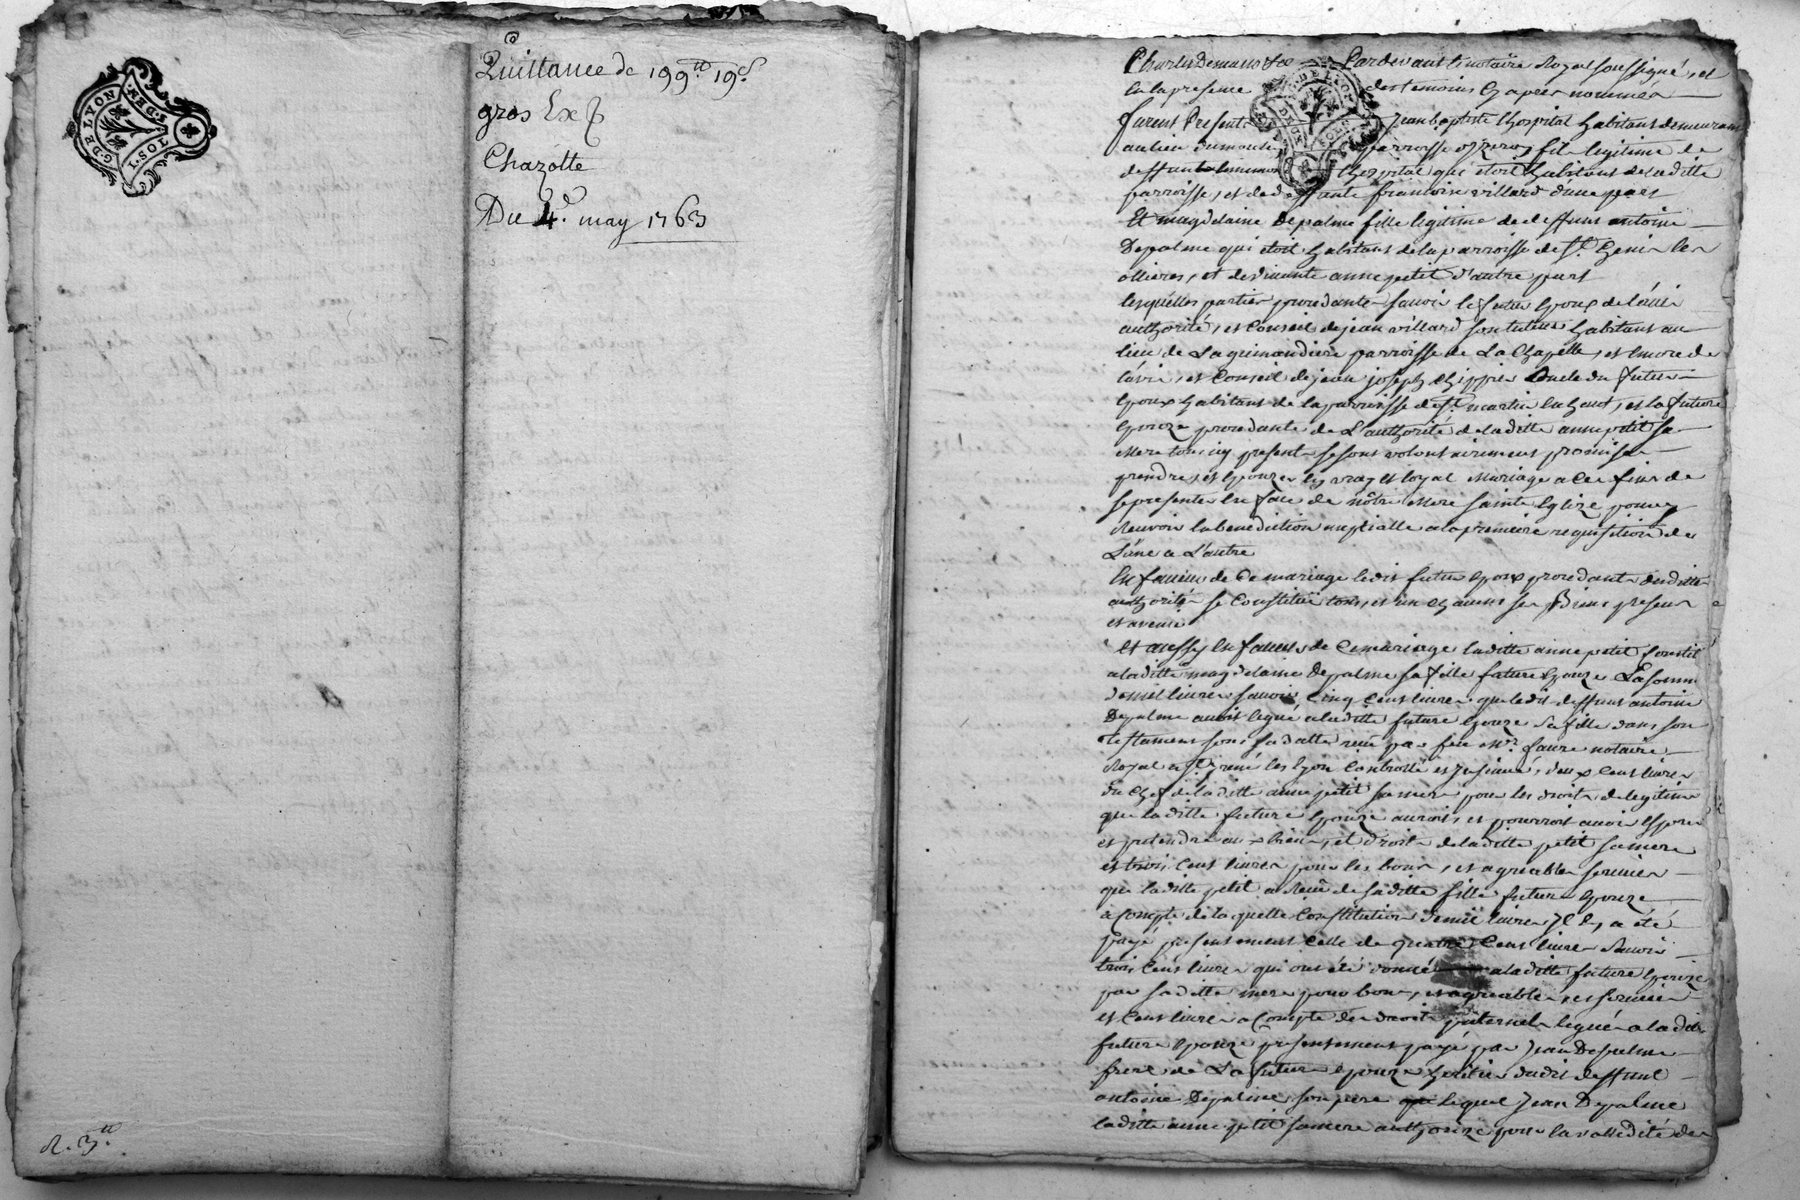 G. DE LYON
G. DEN.
1. SOL
Quittance de 199ᵗᵗ 19ˢ
gros Ex
Chazotte
Du 4ᵈ. may 1763
R. 3ᵗᵗ
Pardevant le notaire Royal soussigné, et
En la presence des temoins cy apres nommés
furent Presents Jean baptiste Lhospital habitant demeurant
au lieu parroisse fils legitime de
deffunt Lhospital qui etoit habitant de laditte
parroisse, et de deffunte francoise villard d'une part
Et magdelaine Depalme fille legitime de deffunt antoine
Depalme qui etoit habitant de la parroisse de Sᵗ Genis les
ollieres, et de vivante anne petit d'autre part
lesquelles parties procedantes savoir le futur Epoux de l'avis
authorité, et Conseil de jean villard son tuteur habitant au
lieu de La grimaudiere parroisse de La Chapelle, et encore de
l'avis, et Conseil de jean joseph oncle du futur
Epoux habitant de la parroisse de Sᵗ martin En haut, et la future
Epouze procedante de L'authorité de laditte anne petit sa
mere tous icy presents se sont volontairement promis se
prendre, et Epouzer En vray et loyal Mariage a Ces fins de
se presenter En face de nôtre Mere sainte Eglize pour y
Recevoir la benediction nuptialle a la premiere requisition de
L'une a L'autre
En faveur de Ce mariage ledit futur Epoux procedant desdittes
authorités se Constitue tous, et un chacuns ses Biens presents
et avenir
Et aussy En faveur de Ce mariage laditte anne petit Constitue
a laditte magdelaine Depalme sa fille future Epouze La somme
de mil livres savoir Cinq Cent livres que ledit deffunt antoine
Depalme avoit legué a laditte future Epouze sa fille dans son
testament sous sa datte reçu par feu Mʳ. faure notaire
Royal a Sᵗ jrené les lyon Controllé et Insinué, deux Cent livres
Du Chef de laditte anne petit sa mere pour les droits de legitime
que laditte future Epouze auroit, et pourroit avoir Esperer
et pretendre aux biens, et droits de laditte petit sa mere
et trois Cent livres pour les bons, et agreables services
que laditte petit a Reçu de saditte fille future Epouze
a Compte de la quelle Constitution de mil livres Il y a été
payé presentement Celle de quatre Cent livres Savoir
trois Cent livres qui ont été donné a laditte future Epouze
par saditte mere pour bons, et agreables, et services
et Cent livres a Compte des droits paternels legués a laditte
future Epouze presentement payé par Jean Depalme
frere de La future Epouze heritier dudit deffunt
antoine Depalme son pere lequel Jean Depalme
laditte anne petit sa mere authorize pour la validité de